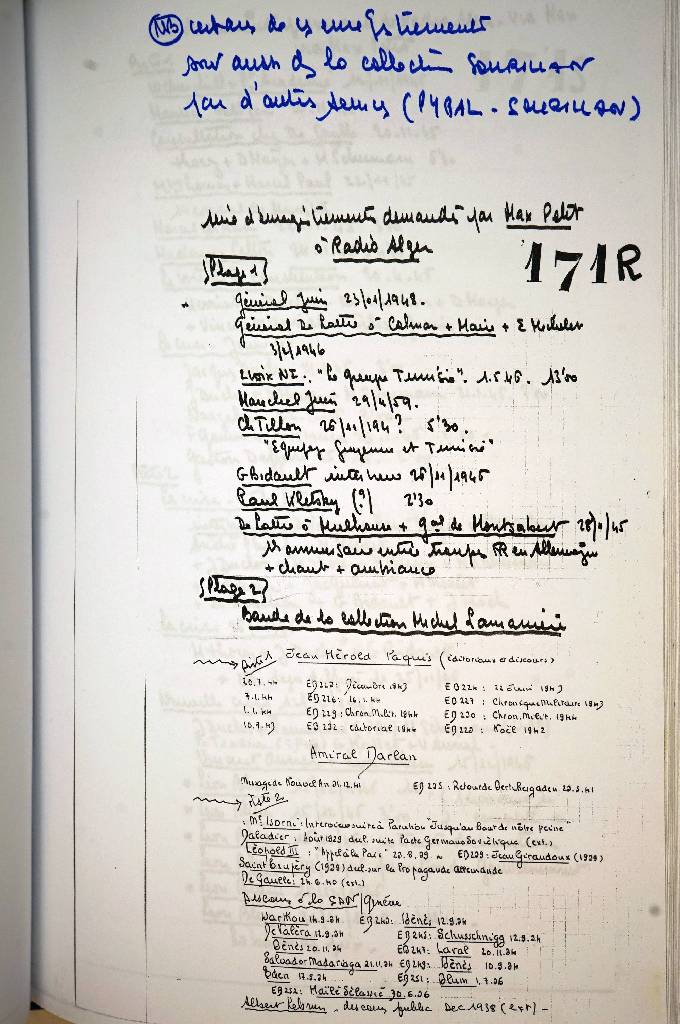 NB certains de ces enregistrements
sont aussi ds la collection SOURILLAN
par d'autres
Série d'enregistrements demandés par Max Petit
à Radio Alger
171R
Plage 1
Général Juin 23/01/1948.
Général De Lattre à Colmar + Maire + E Michelet
1946
"Le groupe Tunisie". 1.5.45. 13'00
Marechal Juin 29/4/59.
Ch Tillon 26/11/194? 5'30.
"Equipes Guyenne et Tunisie"
G Bidault interview 26/11/1945
Paul Kletsky (?) 2'30
De Lattre à Mulhouse + gal de Montsabert
anniversaire entrée troupes FR en Allemagne
+ chant + ambiance
Plage 2
Bande de la collection Michel
Piste 1 Jean Hérold Paquis (éditoriaux et discours)
20.7.44 Décembre 1943 22 Juin 1943
7.1.44 16.1.44 ED 227 : Chronique Militaire 1943
1.1.44 ED 229 : Chron. Milit. 1944 ED 230 : Chron. Milit. 1944
10.7.43 ED 232 : éditorial 1944 Noël 1942
Amiral Darlan
Message de Nouvel An 31.12.41 ED 235 : Retour de Bertchesgaden
Piste 2
: Me Isorni : Interview suite à Parution "Jusqu'au Bout de nôtre peine"
Daladier : Août 1939 décl. suite Pacte Germano Soviétique (ext.)
Léopold III : "Appel à la Paix" ED 239 : Jean Giraudoux (1939)
Saint Exupéry (1939) décl. sur la Propagande Allemande
De Gaulle : 24.6.40 (ext.)
Discours à la SDN / Genève
Barthou ED 243 : Bénès 12.9.34
De Valéra 12.9.34 ED 245 : Schusschnigg 12.9.34
Bénès 20.11.34 ED 247 : Laval 20.11.34
Salvador Madariaga 21.11.34 ED 249 : Bénès 10.9.34
Eden ED 251 : Blum 1.7.36
ED 252 : Haïlé Sélassié 30.6.36
Albert Lebrun, discours public Dec 1938 (ext) -